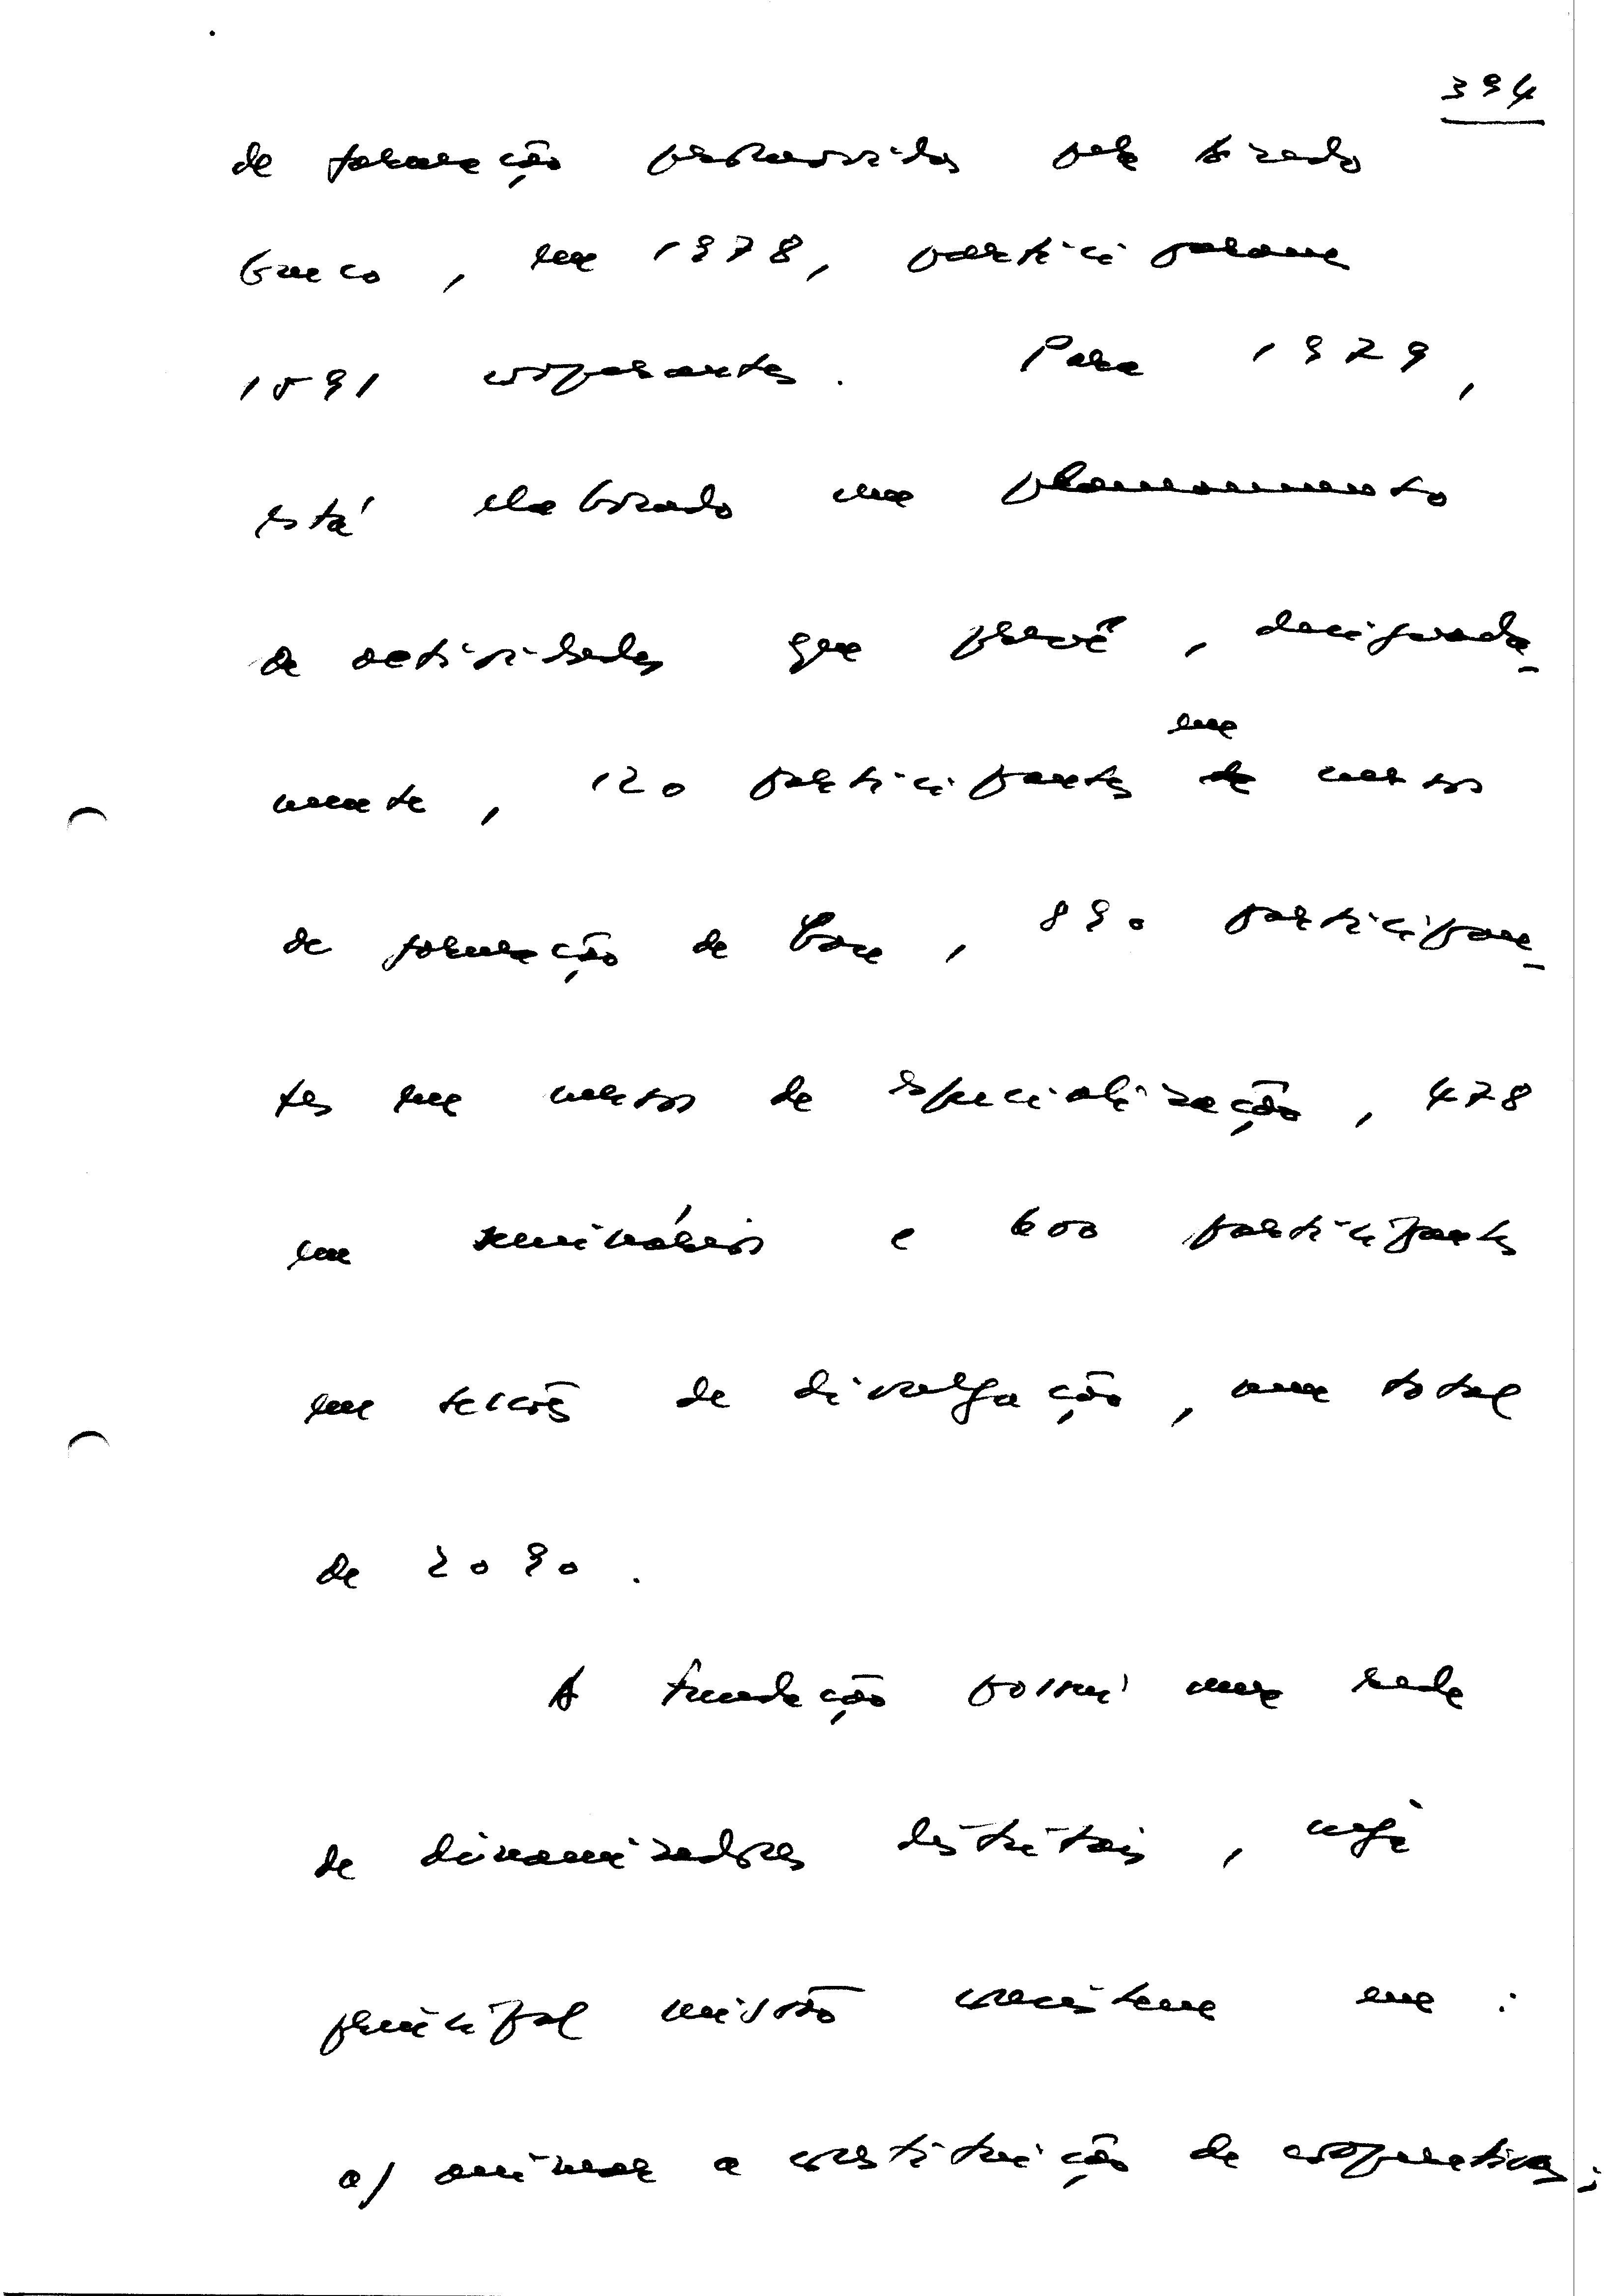 394
de formação promovidas pela Fundação
, em 1978, participaram
1591 cooperantes. Para 1979,
está elaborado um planeamento
de actividades que prevê, designada-
mente, 120 participantes em cursos
de formação de base, 890 participan-
tes em cursos de especialização, 478
em seminários e 600 participantes
em sessões de divulgação, num total
de 2090.
A Fundação possui uma rede
de dinamizadores distritais, cuja
principal missão consiste em:
a) animar a constituição de cooperativas;